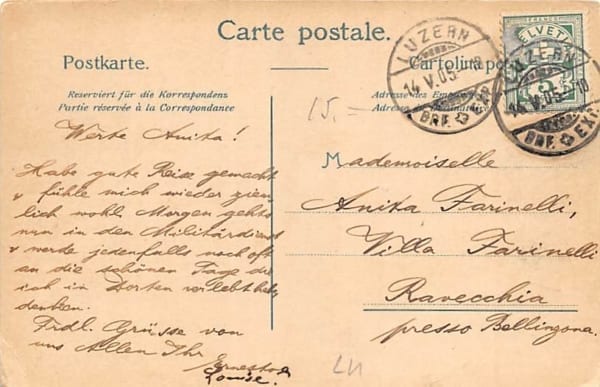 Carte postale.
Postkarte.
Cartolina
Reserviert für die Korrespondenz
Partie réservée à la Correspondance
Adresse des
Adresse du
LUZERN
14.V.05
BRF. EXP.
HELVETIA
FRANCO
5
LUZERN
14.V.05-10
BRF. EXP.
15.-
Werte Anita!
Habe gute Reise gemacht
+ fühle mich wieder ziem-
lich wohl. Morgen gehts
nun in den Militärdienst
+ werde jedenfalls noch oft
an die schönen Tage die
ich in Dorten verlebt habe
denken.
Frdl. Grüsse von
uns Allen Ihr
Ernesto
Louise.
Mademoiselle
Anita Farinelli,
Villa Farinelli
Ravecchia
presso Bellinzona.
LU